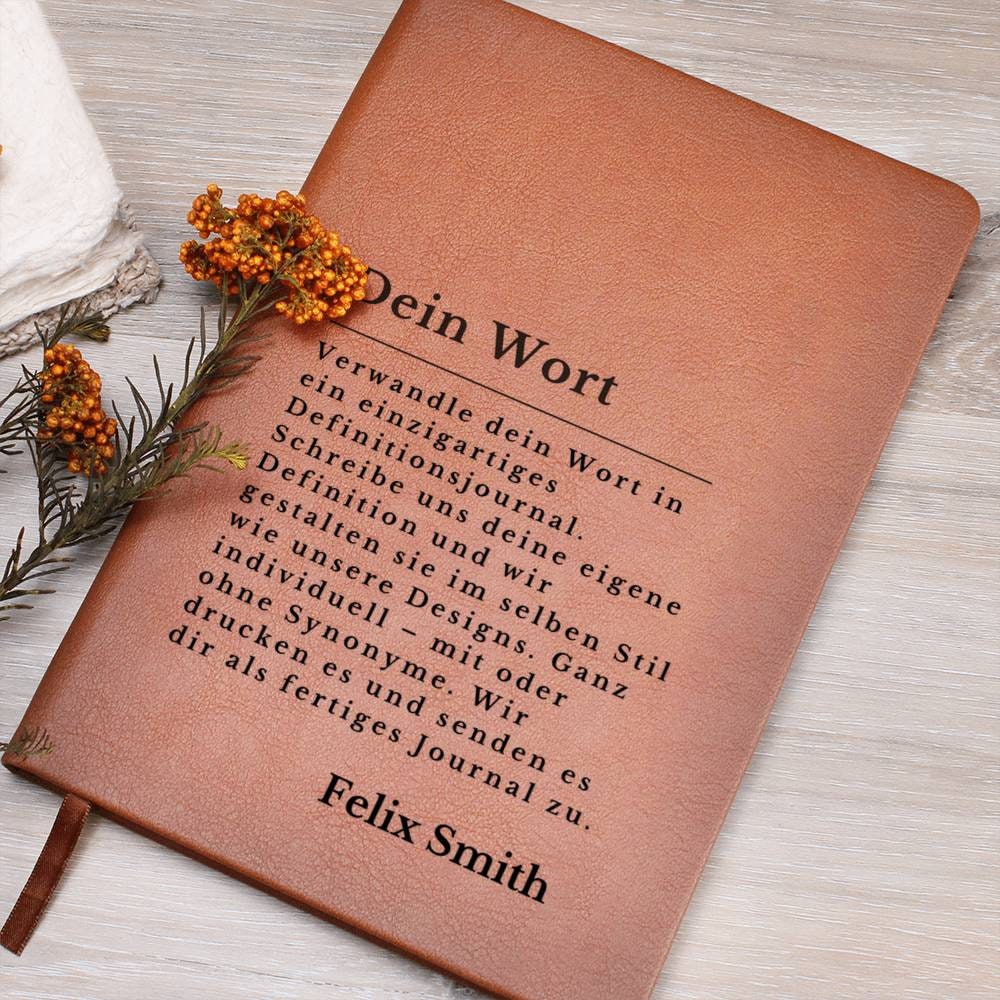 Dein Wort
Verwandle dein Wort in
ein einzigartiges
Definitionsjournal.
Schreibe uns deine eigene
Definition und wir
gestalten sie im selben Stil
wie unsere Designs. Ganz
individuell – mit oder
ohne Synonyme. Wir
drucken es und senden es
dir als fertiges Journal zu.
Felix Smith